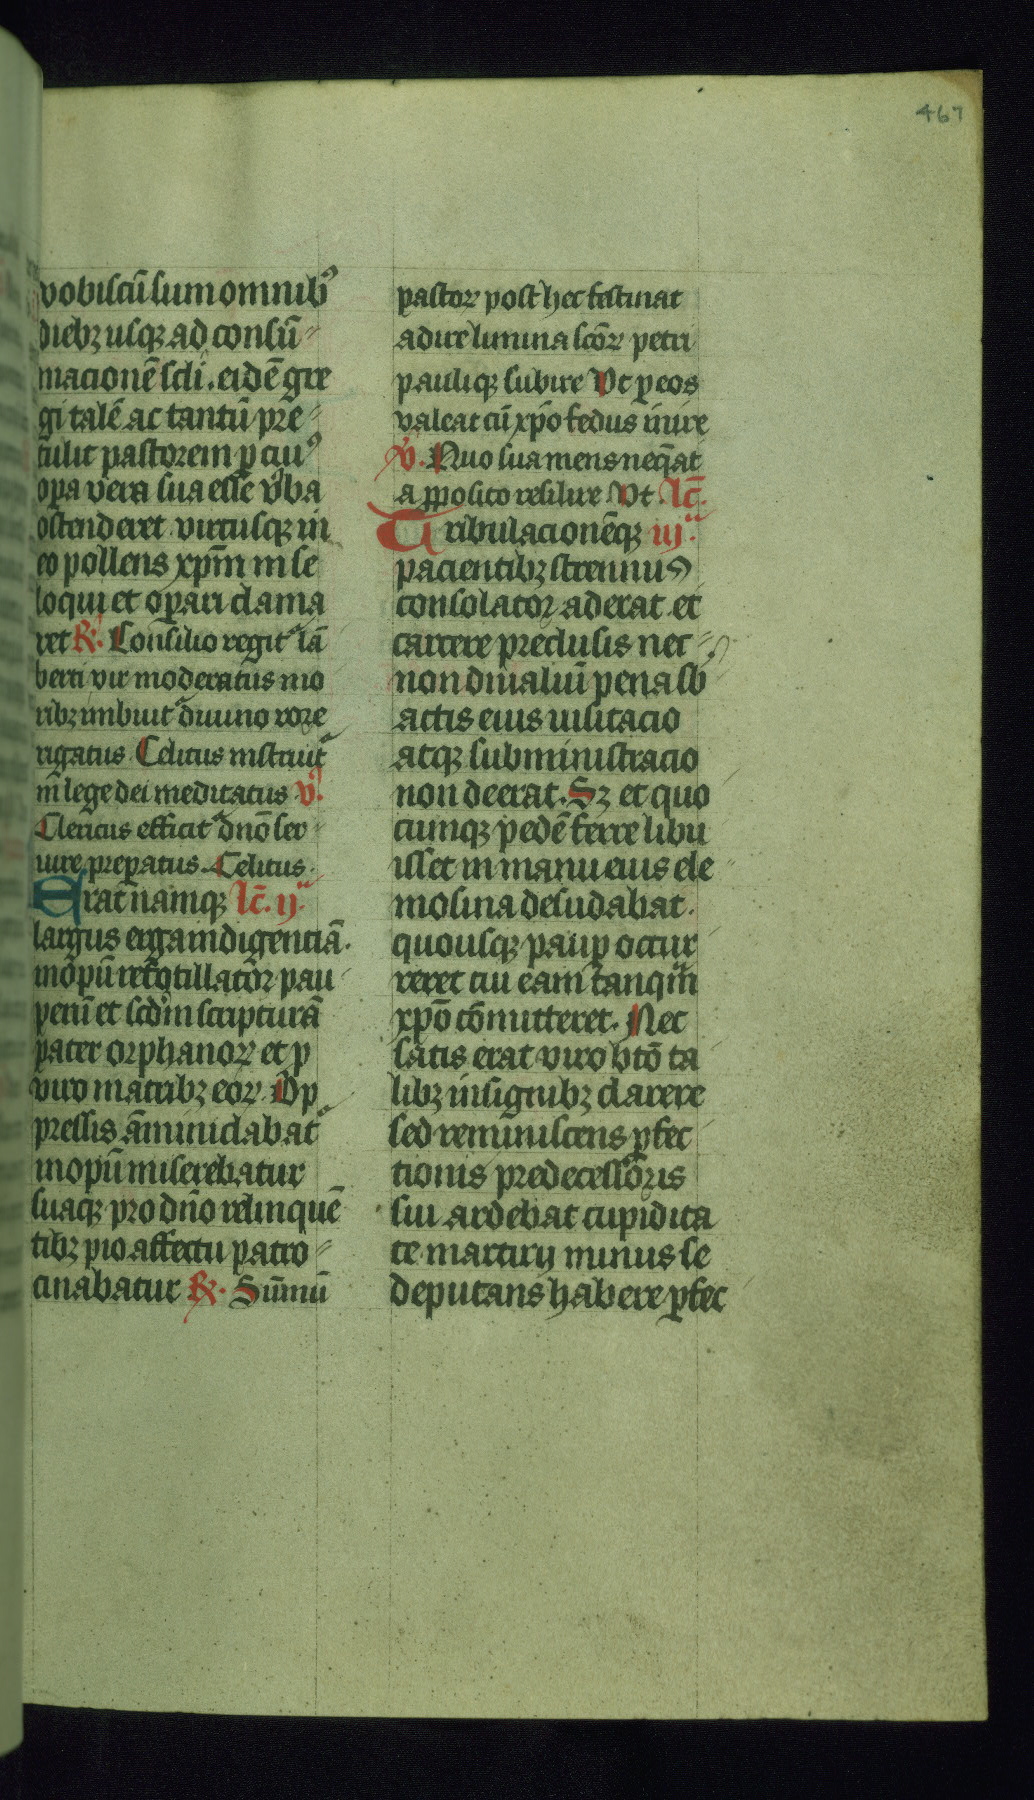 467
vobiscū sum omnibꝰ
diebꝫ usqꝫ ad consū⸗
macionē scl̄i. eidē gre
gi talē ac tantū pre⸗
tulit pastorem ꝑ cuiꝰ
oꝑa vera sua esse v̓ba
ostenderet virtusqꝫ in
eo pollens xp̄m in se
loqui et oꝑari clama
ret ℟. Consilio regit᷑ lā
berti vir moderatus mo
ribꝫ imbuit᷑ diuino rore
rigatus Celitus instruit᷑
in̄ lege dei meditatus ℣.
Clericus efficit᷑ dn̄o ser
uire preꝑatus. Celitus.
Erat namqꝫ lc̄. ij᷑
largus erga indigentiā.
inopū refocillator pau
perū et scd̓m scripturā
pater orphanoꝝ et ꝓ
viro matribꝫ eoꝝ. Op
pressis āminiclabat᷑
inopū miserebatur
suaqꝫ pro dn̄o relinquē
tibꝫ pio affectu patro⸗
cinabatur ℟. Sūmū
pastor post hec festinat
adire limina sc̄oꝝ petri
pauliqꝫ subire Vt ꝑ eos
valeat cū xp̄o fedus inire
℣. Quo sua mens neq̄at
a ꝓposito resilire Vt lc̄.
Tribulacionēqꝫ iij᷑.
pacientibꝫ strennuꝰ
consolator aderat et
carcere preclusis nec⸗
non diual̓iū pena sb̓
actis eius uisitacio
atqꝫ subministracio
non deerat. Sꝫ et quo
cumqꝫ pedē ferre libu
isset in manu eius ele
mosina desudabat.
quousqꝫ pauꝑ occur
reret cui eam tanqm̄
xp̄o cōmitteret. Nec
satis erat viro bt̄o ta
libꝫ insignibꝫ clarere
sed reminiscens ꝑfec
tionis predecessoris
sui ardebat cupidita
te martirij minus se
deputans habere ꝑfec